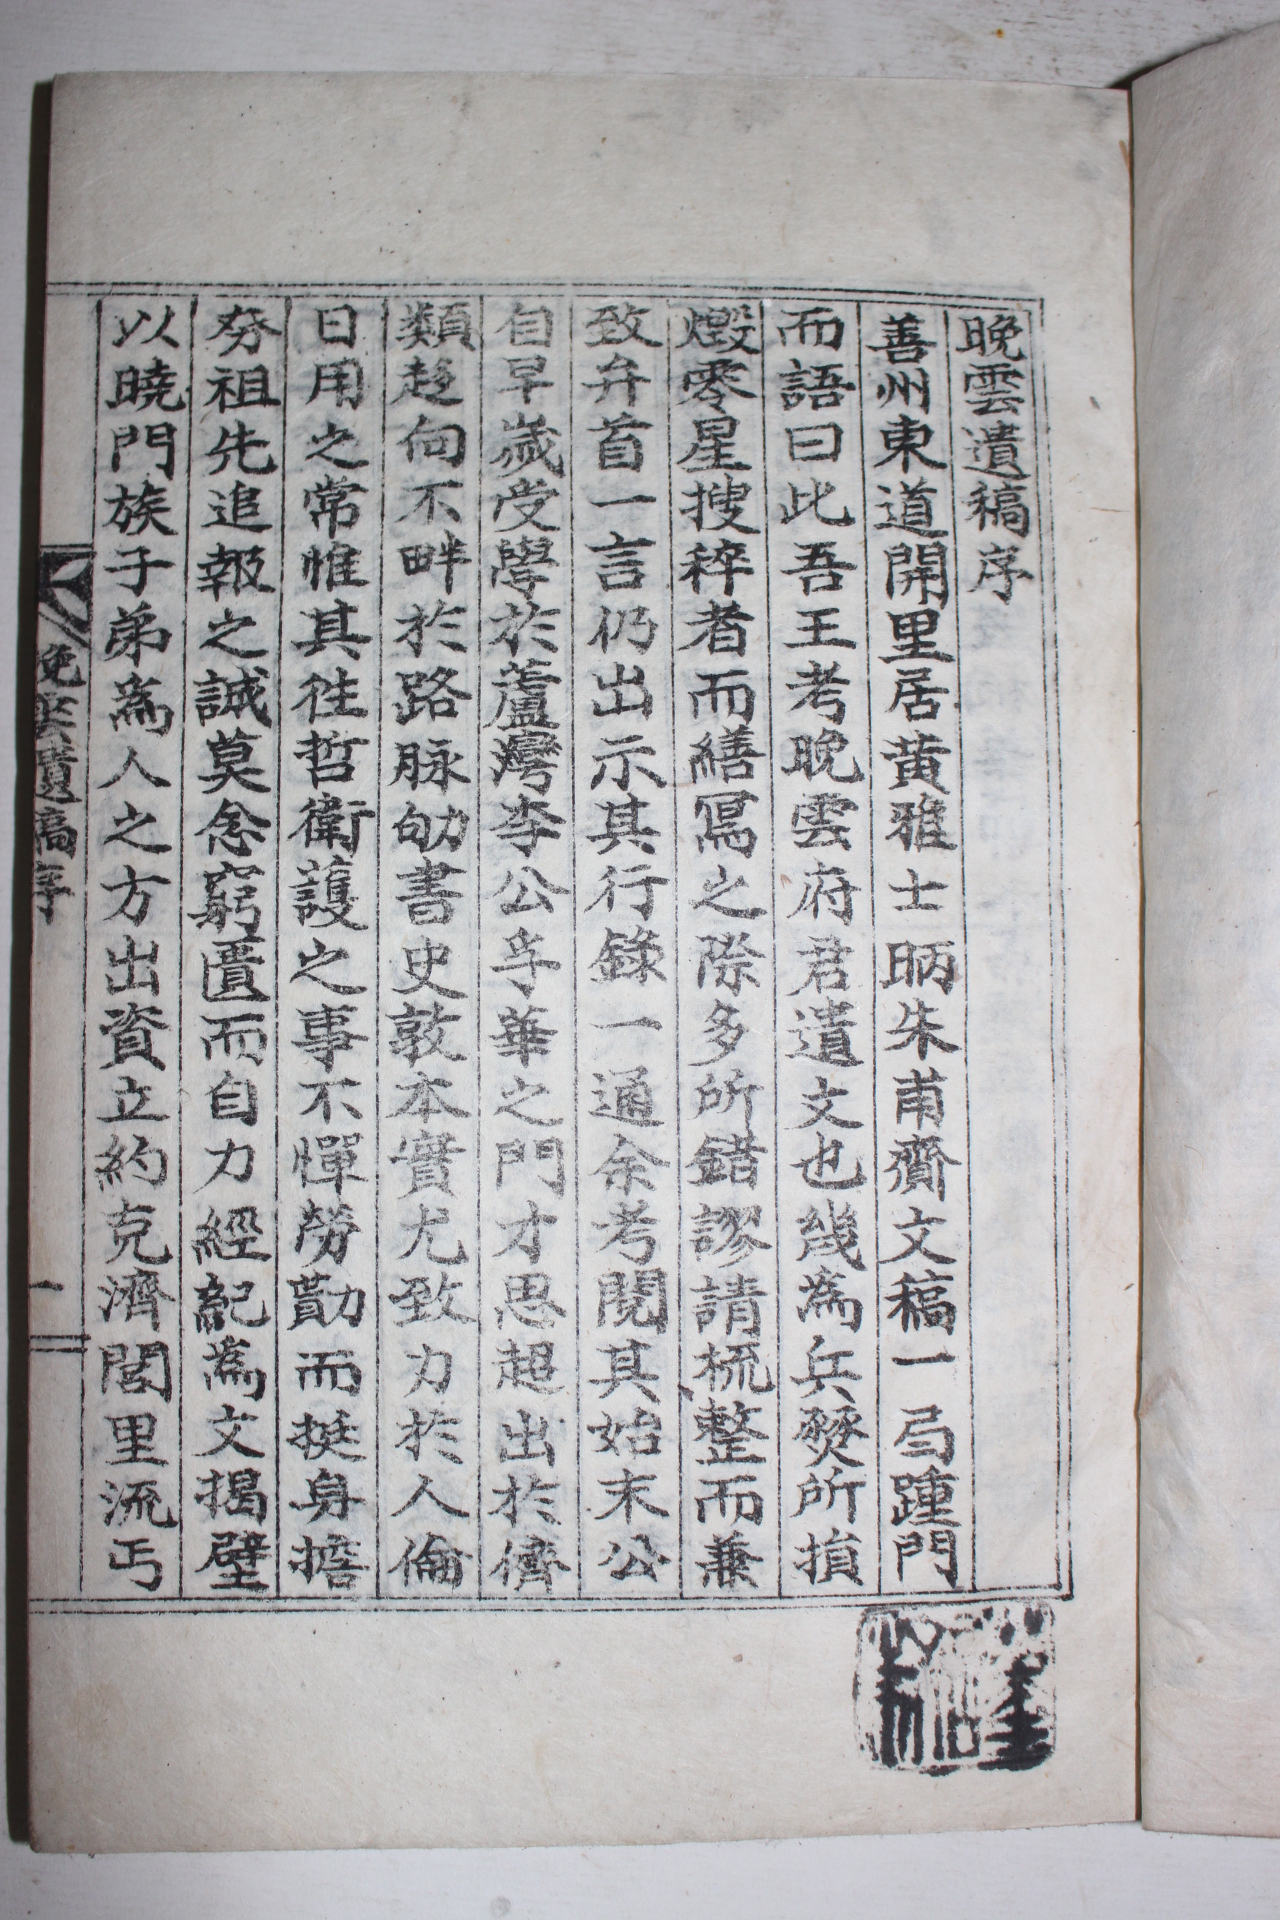 晩雲遺稿序
善州東道開里居黃雅士昞朱甫齎文稿一弓踵門
而語曰此吾王考晩雲府君遺文也幾爲兵燹所損
燬零星搜稡者而繕寫之際多所錯謬請梳整而兼
致弁首一言仍出示其行錄一通余考閱其始末公
自早歲受學於蘆灣李公孚華之門才思超出於儕
類趍向不畔於路脉劬書史敦本實尤致力於人倫
日用之常惟其徃哲衛護之事不憚勞勩而挺身擔
夯祖先追報之誠莫念窮匱而自力經紀爲文揭壁
以曉門族子弟爲人之方出資立約克濟閭里流丐
晩雲遺稿序
一